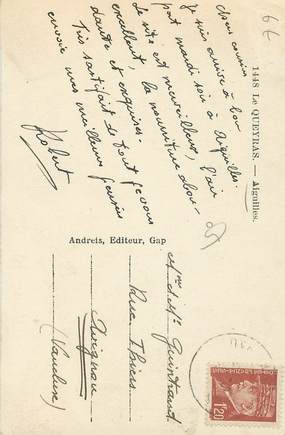 1448 Le QUEYRAS. — Aiguilles.
Chers cousins
Je suis arrivé à bon
port mardi soir à Aiguilles.
Le site est merveilleux, l'air
excellent, la nourriture abon-
dante et exquise.
Très satisfait de tout je vous
envoie mes meilleures pensées
Robert
Andreis, Editeur, Gap
Mme & Mr Guintrand
Rue Thiers
Avignon
(Vaucluse)
1F20